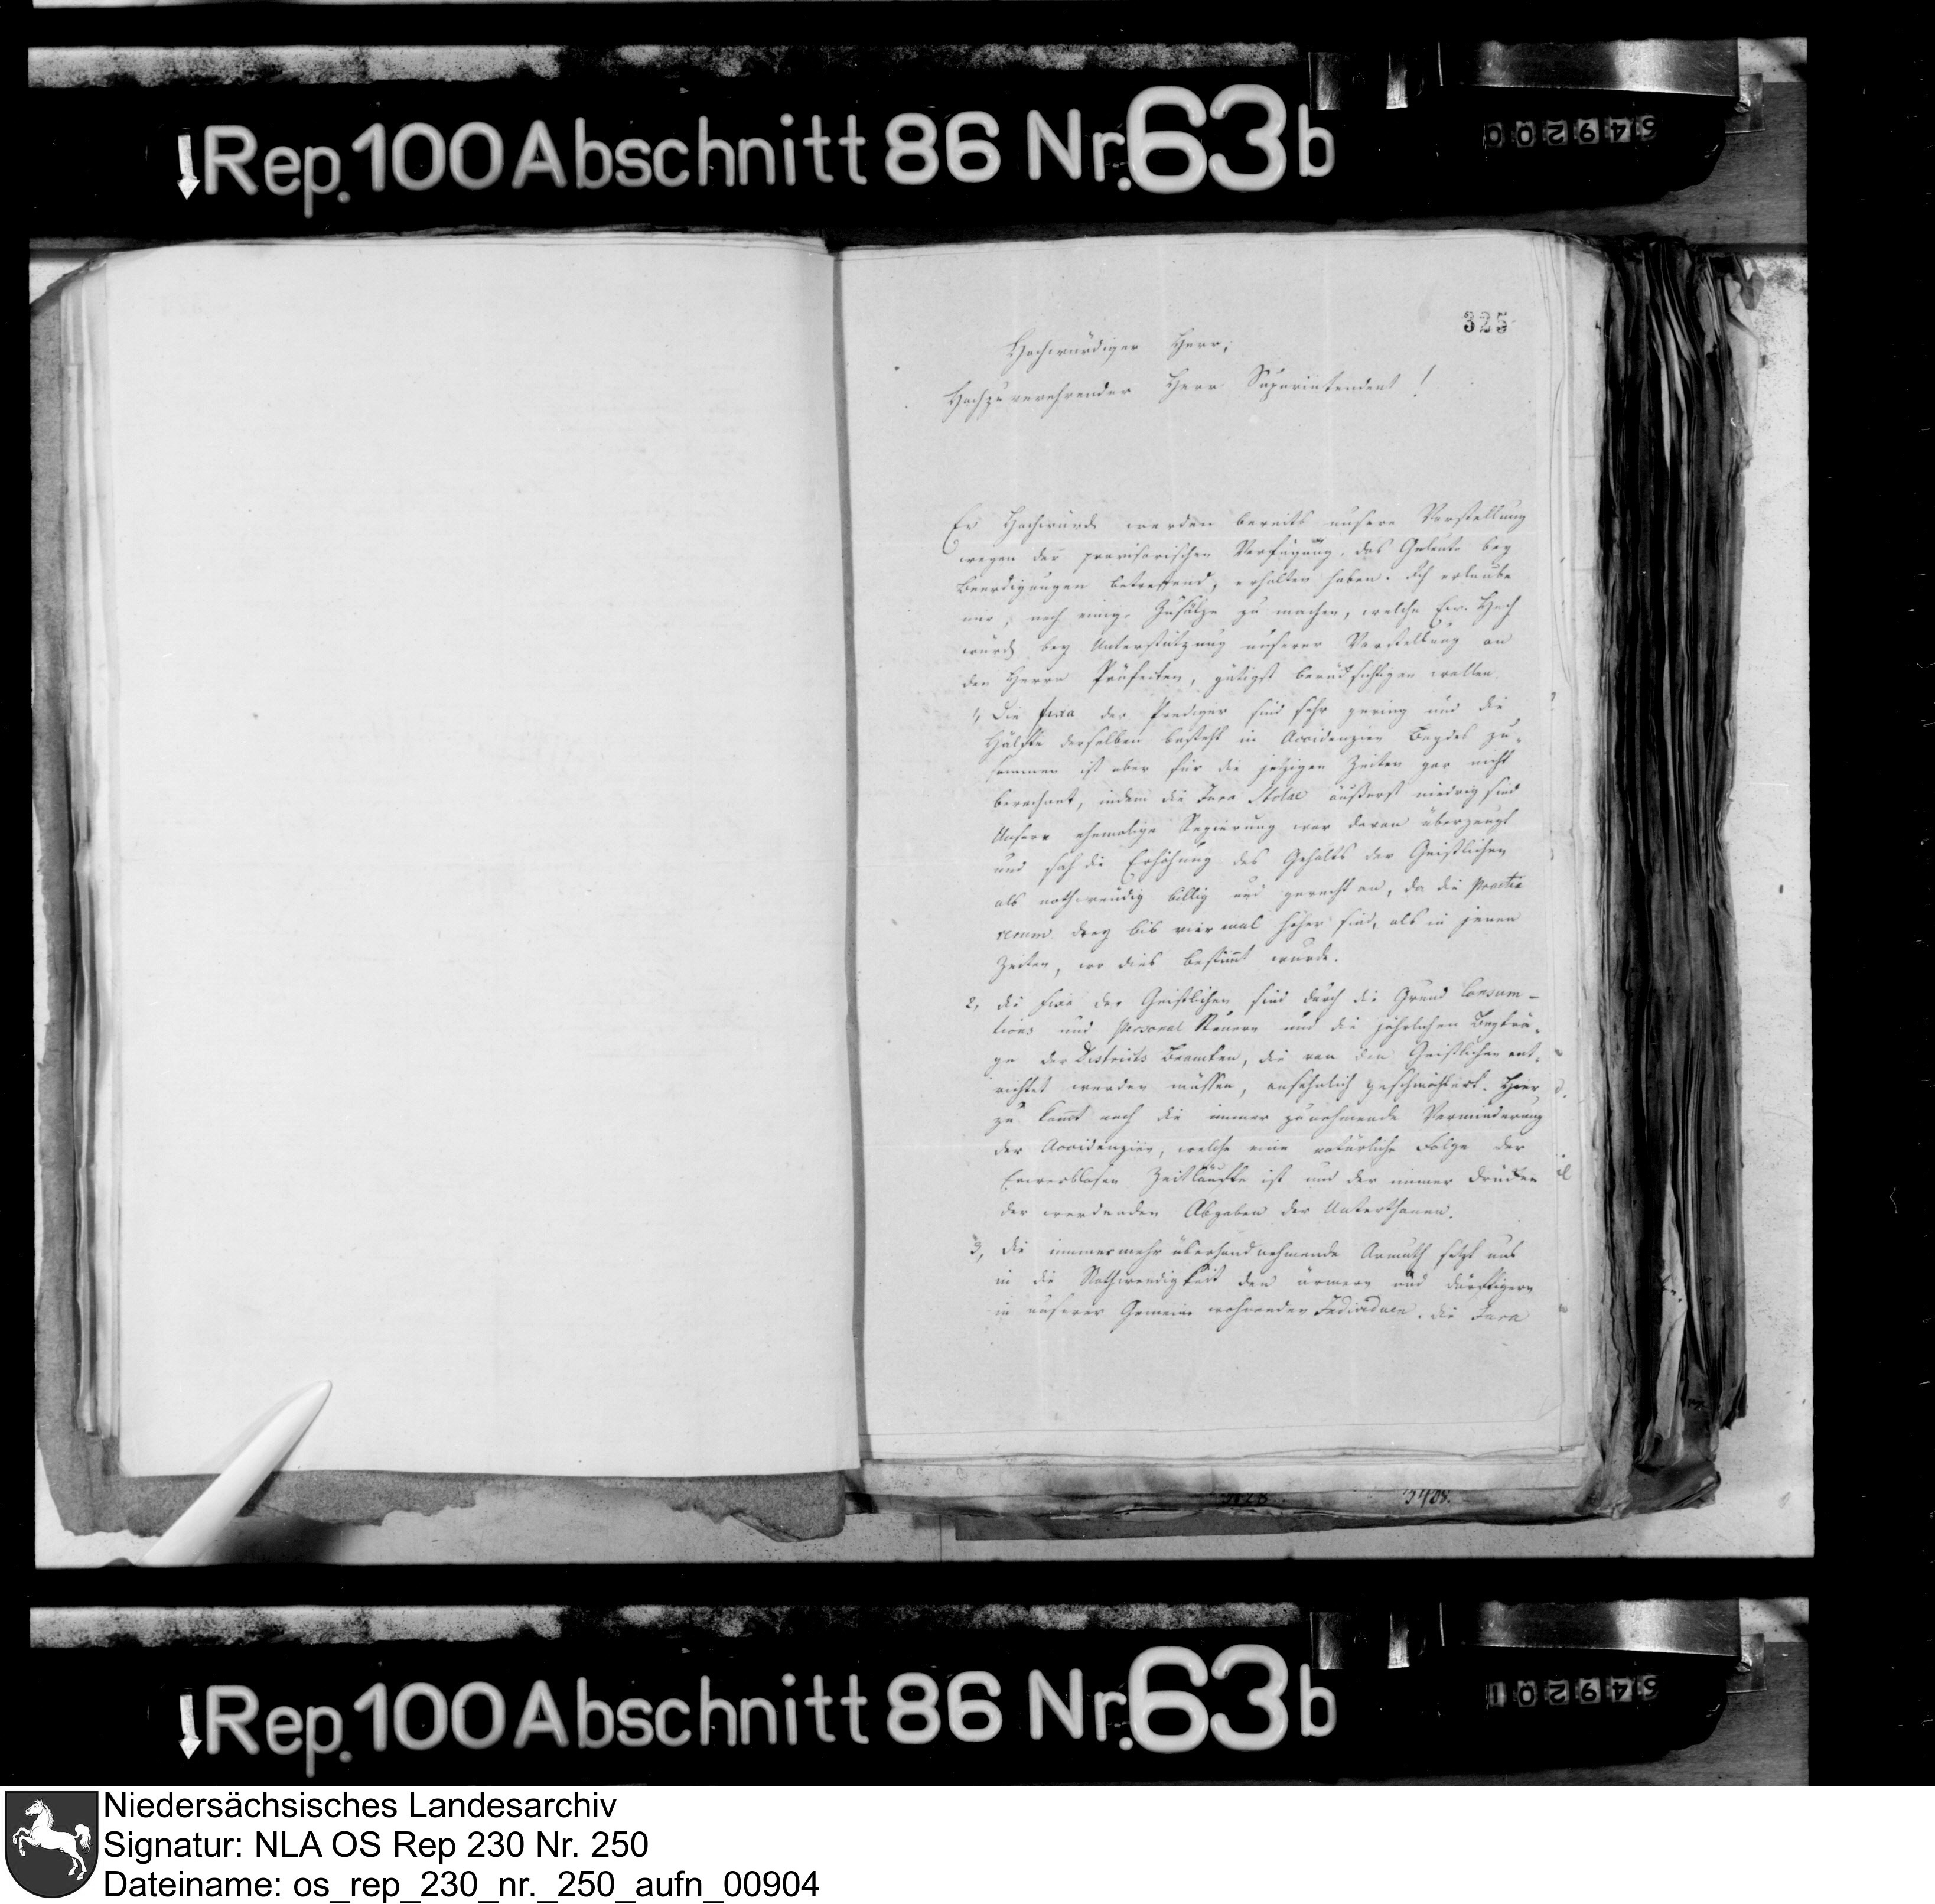 Rep. 100 Abschnitt 86 Nr. 63 b
549200
325
Hochwürdiger Herr,
Hochzuverehrender Herr Superintendent!
Ew Hochwürd werden bereits unsere Vorstellung
wegen der provisorischen Verfügung, das Geleute bey
Beerdigungen betreffend, erhalten haben. Ich erlaube
mir, noch einige Zusätze zu machen, welche Ew. Hoch
würd bey Unterstützung unserer Vorstellung an
den Herrn Präfecten, gütigst berücksichtigen wollen.
1, Die fixa der Prediger sind sehr gering und die
Hälfte derselben besteht in Accidenzien Beydes zu-
sammen ist aber für die jetzigen Zeiten gar nicht
berechnet, indem die Jura Stolae äußerst niedrig sind
Unsere ehemalige Regierung war davon überzeugt
und sah die Erhöhung des Gehalts der Geistlichen
als nothwendig billig und gerecht an, da die praetia
rerum drey bis vier mal höher sind, als in jenen
Zeiten, wo dies bestimt wurde.
2, die fixa der Geistlichen sind durch die Grund Consum-
tions und Personal Steuern und die jährlichen Beyträ-
ge der Districts Beamten, die von den Geistlichen ent-
richtet werden müssen, ansehnlich geschmälert. Hier
zu komt noch die immer zunehmende Verminderung
der Accidenzien, welche eine natürliche Folge der
Erwerblosen Zeitläufte ist und der immer drücken
der werdenden Abgaben der Unterthanen.
3, die immer mehr überhand nehmende Armuth setzt uns
in die Nothwendigkeit den ärmern und dürftigern
in unserer Gemeine wohnenden Individuen, die Jura
5408.
Rep. 100 Abschnitt 86 Nr. 63 b
549201
Niedersächsisches Landesarchiv
Signatur: NLA OS Rep 230 Nr. 250
Dateiname: os_rep_230_nr._250_aufn_00904